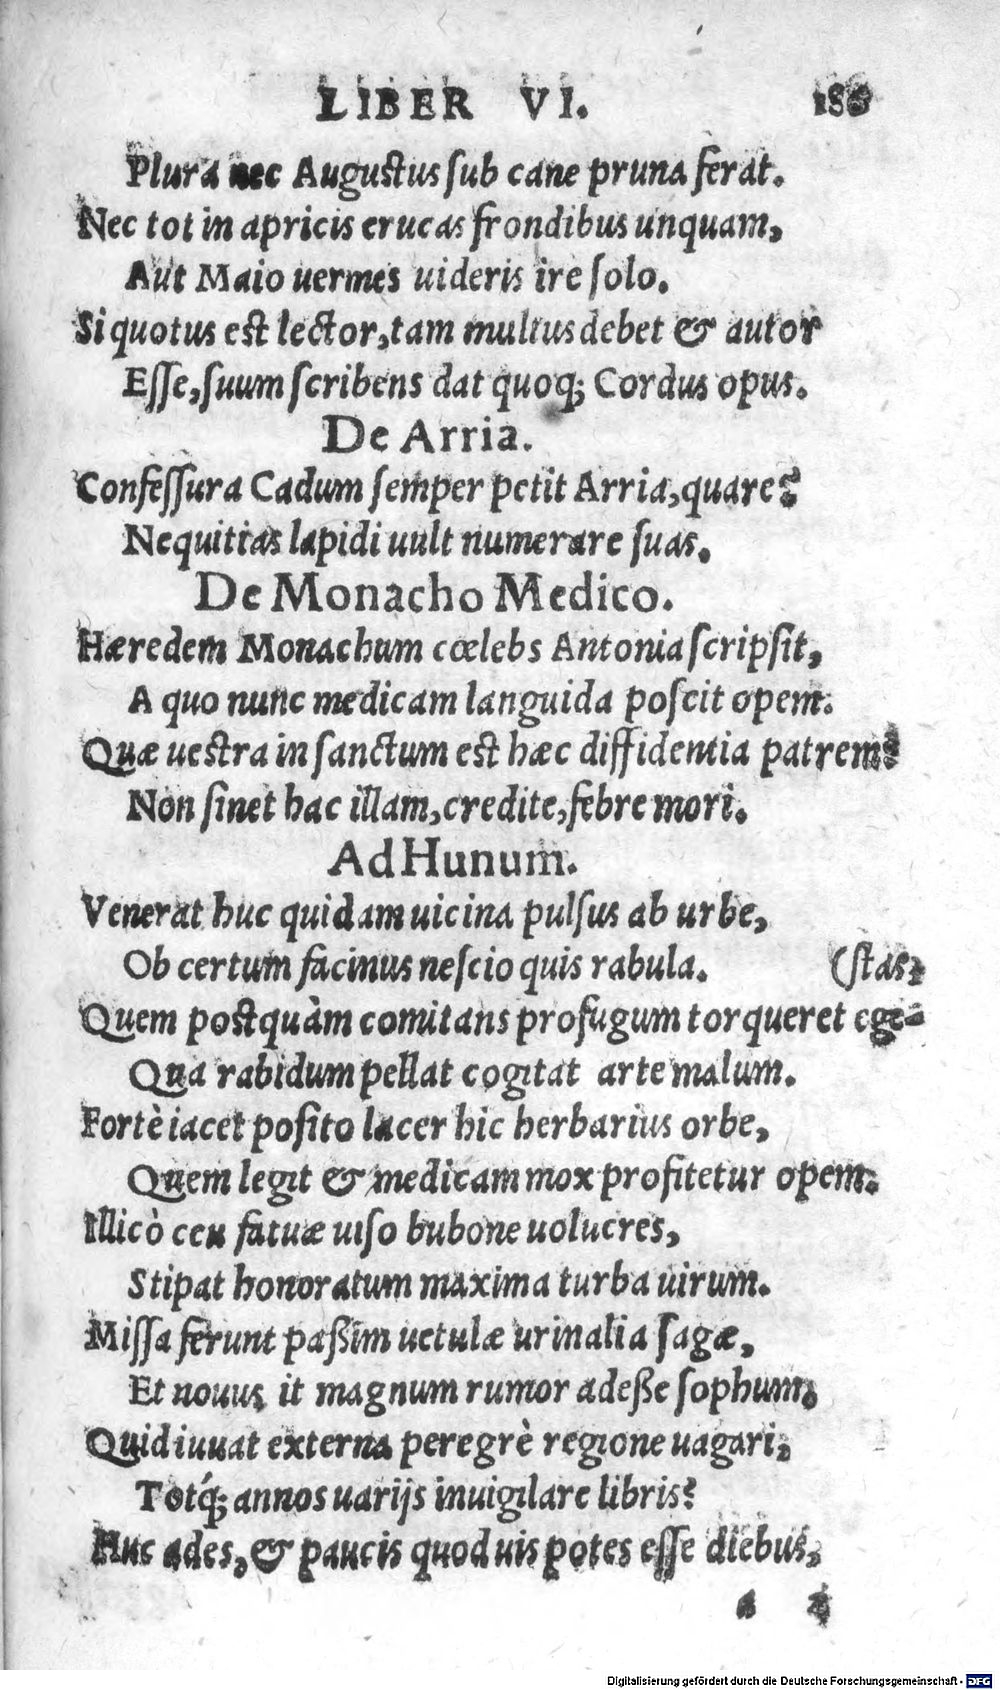 LIBER VI. 186
Plura nec Augustus sub cane pruna ferat.
Nec tot in apricis erucas frondibus unquam,
Aut Maio uermes uideris ire solo.
Si quotus est lector, tam multus debet & autor
Esse, suum scribens dat quoq; Cordus opus.
De Arria.
Confessura Cadum semper petit Arria, quare?
Nequitias lapidi uult numerare suas.
De Monacho Medico.
Hæredem Monachum cœlebs Antonia scripsit,
A quo nunc medicam languida poscit opem.
Quæ uestra in sanctum est hæc diffidentia patrem?
Non sinet hac illam, credite, febre mori.
Ad Hunum.
Venerat huc quidam uicina pulsus ab urbe,
Ob certum facinus nescio quis rabula. (stas,
Quem postquàm comitans profugum torqueret ege-
Qua rabidum pellat cogitat arte malum.
Fortè iacet posito lacer hic herbarius orbe,
Quem legit & medicam mox profitetur opem.
Illicò ceu fatuæ uiso bubone uolucres,
Stipat honoratum maxima turba uirum.
Missa ferunt paßim uetulæ urinalia sagæ,
Et nouus it magnum rumor adeße sophum.
Quid iuuat externa peregrè regione uagari,
Totq́; annos uarijs inuigilare libris?
Huc ades, & paucis quod uis potes esse diebus,